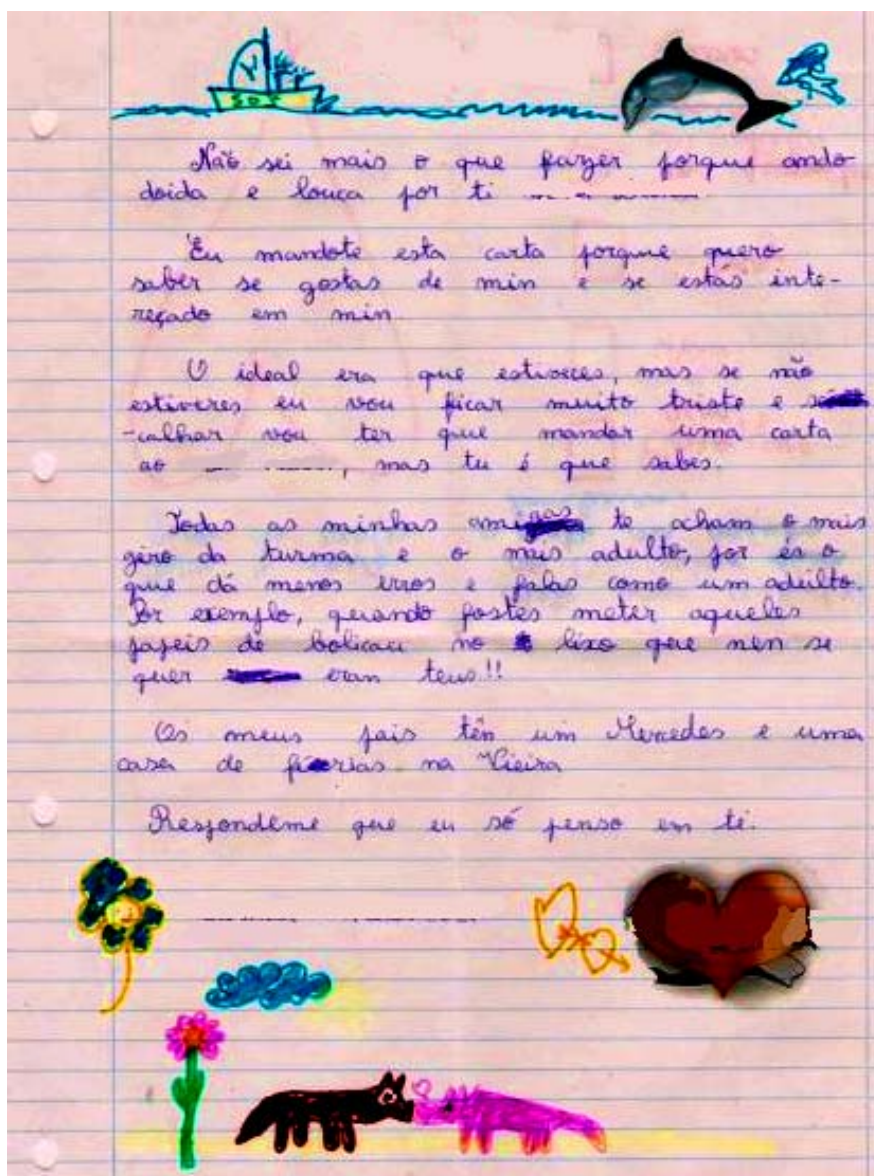 SOS
Não sei mais o que fazer porque ando
doida e louca por ti
Eu mandote esta carta porque quero
saber se gostas de min e se estás inte-
reçado em min
O ideal era que estiveces, mas se não
estiveres eu vou ficar muito triste e se
-calhar vou ter que mandar uma carta
ao , mas tu é que sabes.
Todas as minhas amigas te acham o mais
giro da turma e o mais adulto, por és o
que dá menos erros e falas como um adulto.
Por exemplo, quando fostes meter aqueles
papeis de bolicau no lixo que nen se
quer eran teus!!
Os meus pais tên um Mercedes e uma
casa de férias na Vieira
Respondeme que eu só penso em ti.